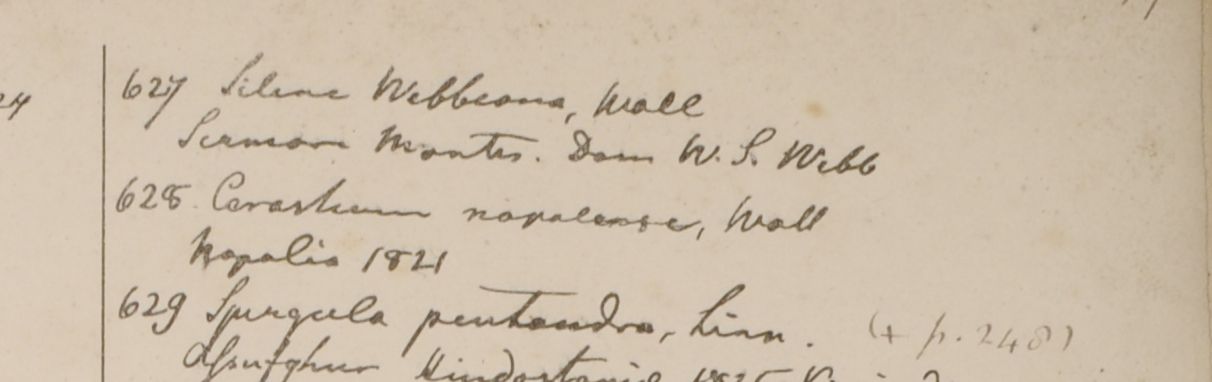 24
627 Silene Webbeana, Wall
Sirmore Montis. Dom W. S. Webb
628 Cerastium napalense, Wall
Napalia 1821
629 Spergula pentandra, Linn. (+ p. 248)
Hindostania 1825